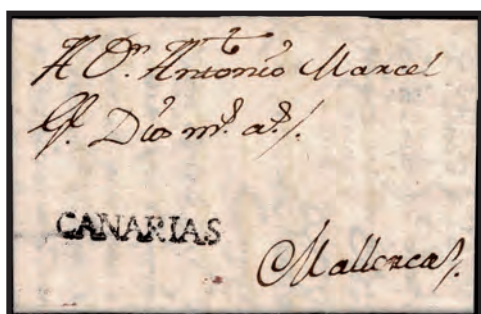 A Dn. Antonio Marcel
Ge. Dios ms. as.
CANARIAS
Mallorca